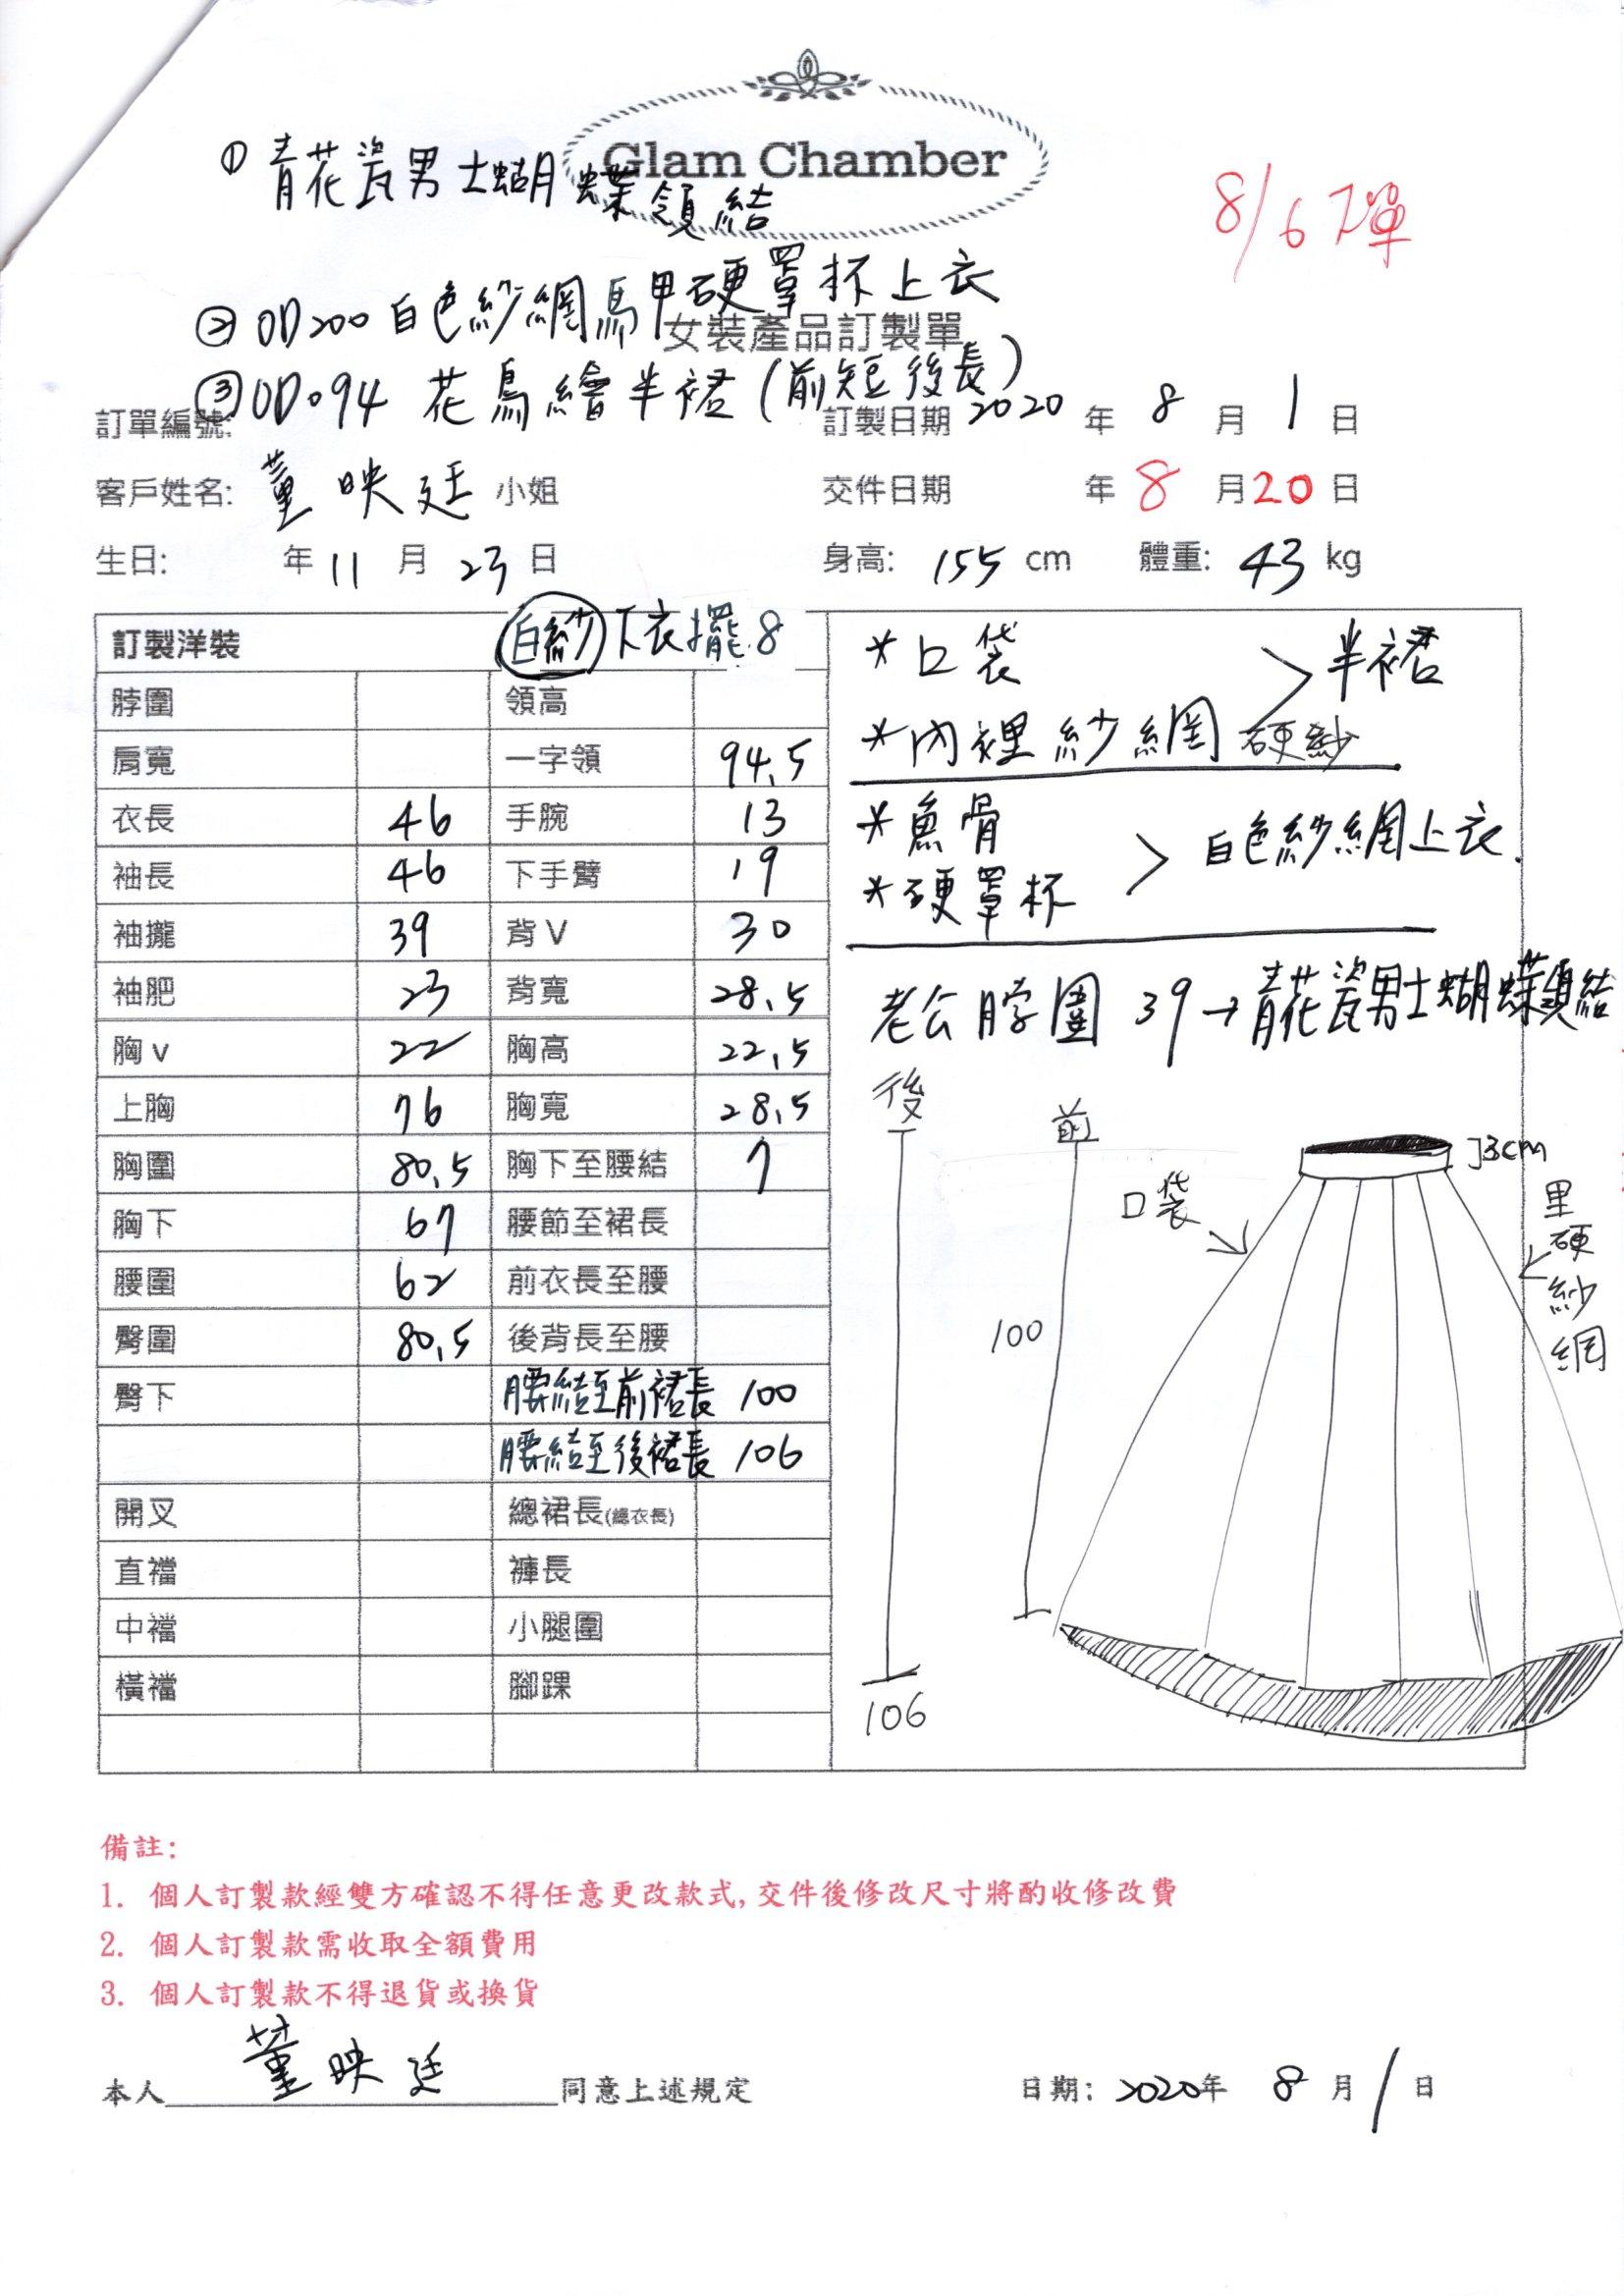 Glam Chamber
① 青花瓷男士蝴蝶領結
8/6 下單
② OD200 白色紗網馬甲硬罩杯上衣
女裝產品訂製單
③ OD094 花鳥繪半裙(前短後長)
訂單編號: 訂製日期 2020 年 8 月 1 日
客戶姓名: 董映廷 小姐 交件日期 年 8 月 20 日
生日: 年 11 月 23 日 身高: 155 cm 體重: 43 kg
訂製洋裝 白紗 下衣擺 8
脖圍 領高
肩寬 一字領 94.5
衣長 46 手腕 13
袖長 46 下手臂 19
袖攏 39 背V 30
袖肥 23 背寬 28.5
胸v 22 胸高 22.5
上胸 76 胸寬 28.5
胸圍 80.5 胸下至腰結 7
胸下 67 腰節至裙長
腰圍 62 前衣長至腰
臀圍 80.5 後背長至腰
臀下 腰結至前裙長 100
腰結至後裙長 106
開叉 總裙長(總衣長)
直襠 褲長
中襠 小腿圍
橫襠 腳踝
*口袋 > 半裙
*內裡紗網 硬紗
*魚骨 > 白色紗網上衣.
*硬罩杯
老公脖圍 39→青花瓷男士蝴蝶領結
後
前
3cm
口袋
里硬紗網
100
106
備註:
1. 個人訂製款經雙方確認不得任意更改款式,交件後修改尺寸將酌收修改費
2. 個人訂製款需收取全額費用
3. 個人訂製款不得退貨或換貨
本人 董映廷 同意上述規定 日期: 2020年 8 月 1 日